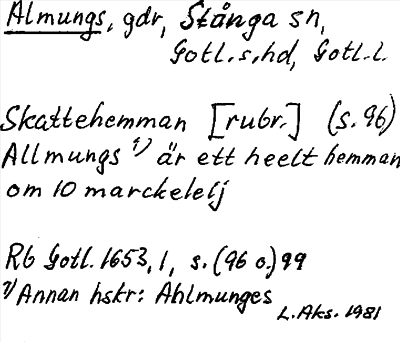 Almungs, gdr, Stånga sn,
Gotl.s.hd, Gotl.l.
Skattehemman [rubr.] (s.96)
Allmungs 1) är ett heelt hemman
om 10 marckeleij
Rb Gotl. 1653, 1, s. (96 o.) 99
1) Annan hskr: Ahlmunges
L.Aks. 1981